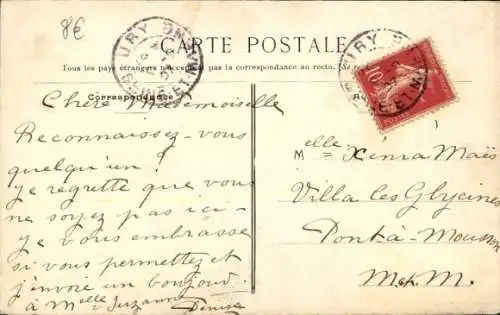 8€
CARTE POSTALE
Tous les pays étrangers n'acceptent pas la correspondance au recto.
Correspondance
URY
SEINE-ET-M
URY
SEINE-ET-M
10
Chère Mademoiselle
Reconnaissez-vous
quelqu'un?
Je regrette que vous
ne soyez pas ici-
Je vous embrasse
si vous permettez et
j'envoie un bonjour
à Melle Suzanne
Denise
Melle Xenia Maës
Villa les Glycines
Pont-à-Mousson
M et M.